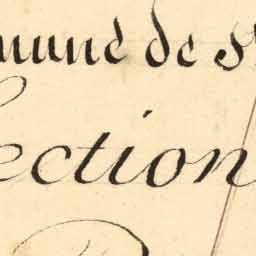 mune de S
ection